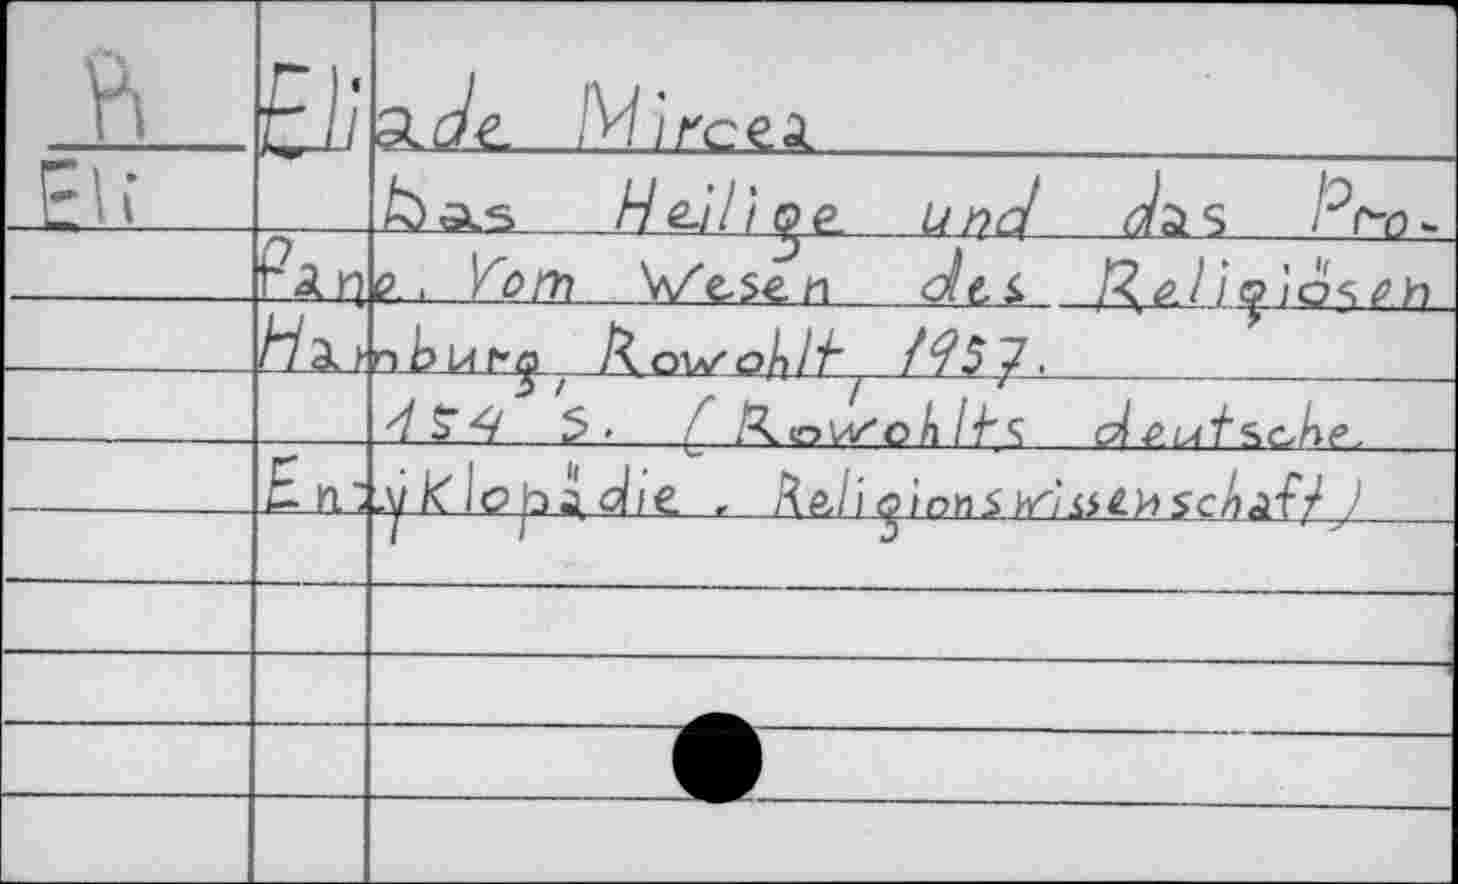 R Eliade Mircea
Eli Das Heilige und das Pro-
Pane. Vom Wesen des Religiösen
Hamburg, Rowohlt, 1957.
154 S. (Rowohlts deutsche
Enzyklopädie, Religionswissenschaft)